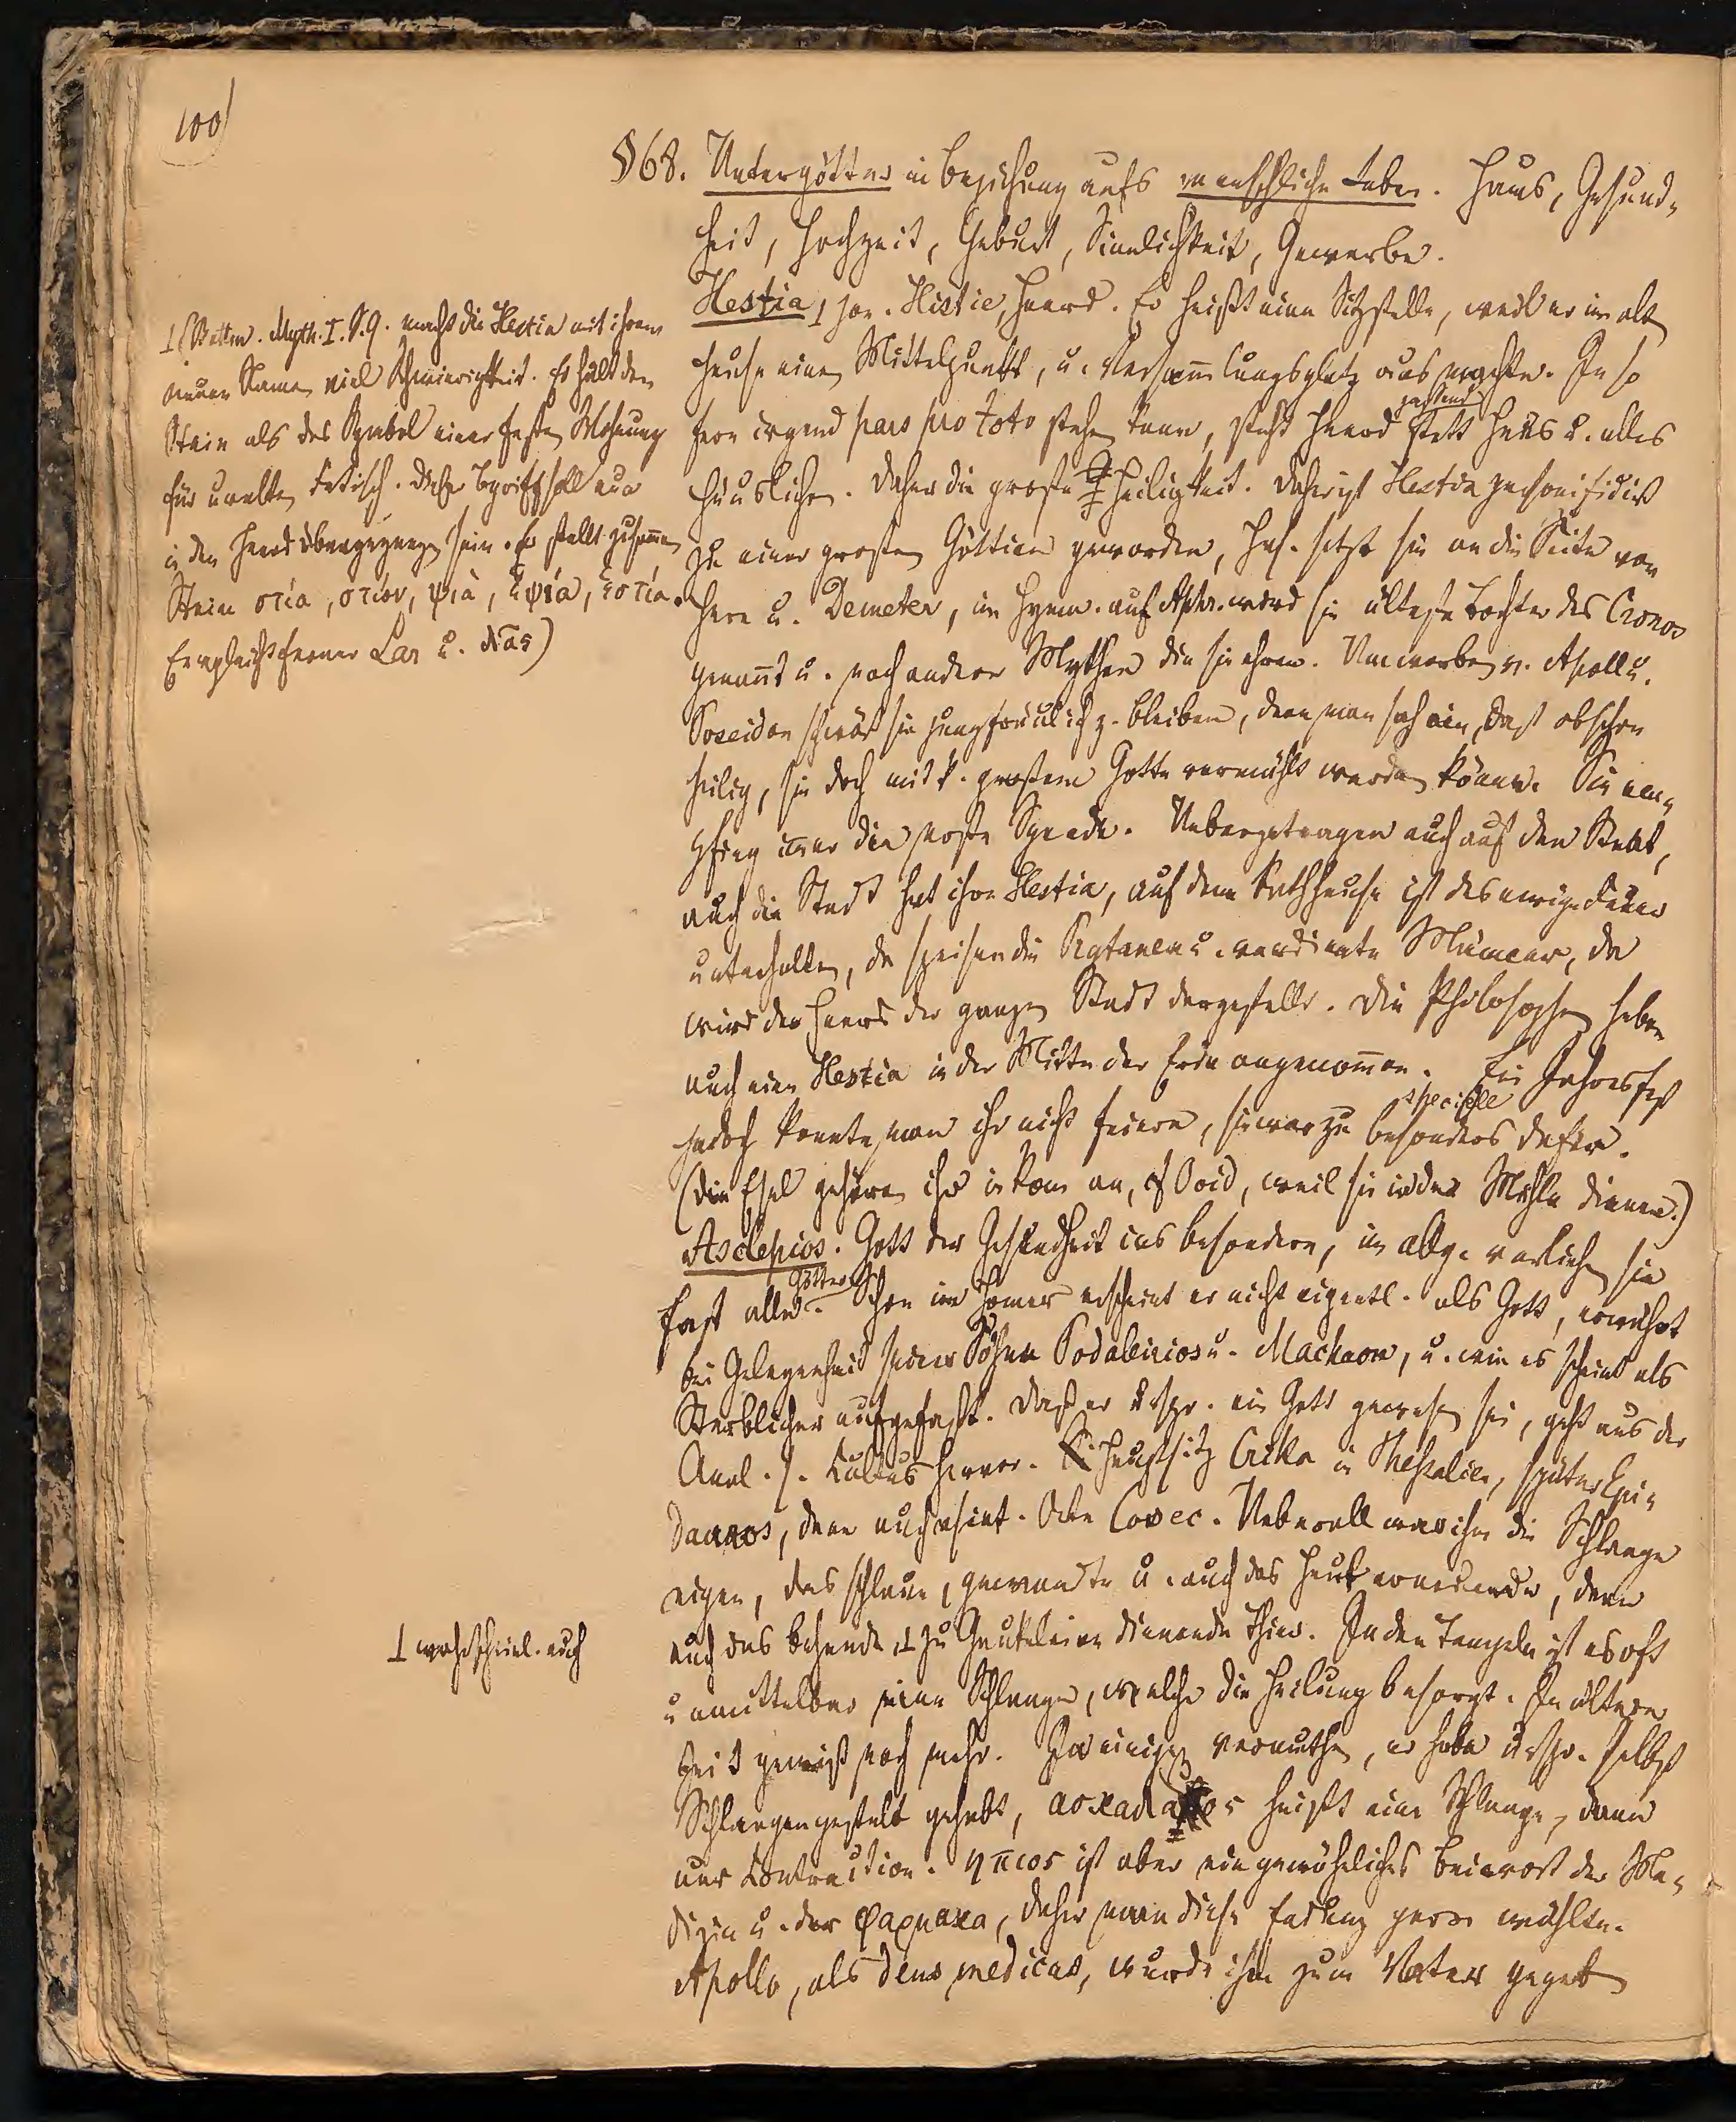 100
§68. Untergötter in Beziehung aufs menschliche Leben. Haus, Gesund-
heit, Hochzeit, Geburt, Sinnlichkeit, Gewerbe.
Hestia, ion. Histie, Heerd. Es heißt eine Sitzstelle, weil er im alt
Hause einen Mittelpunkt, u. Versammlungsplatz aus machte. In so
fern irgend pars pro toto stehen kann, steht Heerd statt Haus u. alles
passend
häuslichen. Daher die große Heiligkeit. Daher ist Hestia personificirt
zu einer großen Göttinn geworden, Hes. setzt sie an die Seite von
Here u. Demeter, im Hymn. auf Aphr. wird sie älteste Tochter des Cronos
genannt u. noch andere Mythen die sie ehren. Umworben v. Apoll u.
Poseidon schwört sie jungfräulich z. bleiben, denn man sah ein, daß obschon
heilig, sie doch mit k. großem Gotte vermählt werden könne. Sie em-
pfing immer die erste Spende. Uebergetragen auch auf den Staat,
auch die Stadt hat ihre Hestia, auf dem Rathhause ist das ewige Feuer
unterhalten, da speisen die Prytanen u. verdiente Männer, da
wird der Heerd der ganzen Stadt dargestellt. Die Philosophen haben
auch eine Hestia in der Mitte der Erde angenommen. Ein Jahresfest
specielle
jedoch konnte man ihr nicht feiern, sie war zu besonders dafür.
(Die Esel gehören ihr in Rom an, cf Ovid, weil sie in der Mühle dienen.)
Asclepios. Gott der Gesundheit ins besondere, im allg. verliehen sie
Götter
fast alle. Schon im Homer erscheint er nicht eigentl. als Gott, erwähnt
bei Gelegenheit seiner Söhne Podalirios u. Machaon, u. wie es scheint als
Sterblicher aufgefaßt. Daß er urspr. ein Gott gewesen sei, geht aus der
Anal. s. Cultus hervor. Hauptsitz Trika in Thessalien, später Epi-
dauros, dann auch Ueberall war ihm die Schlange
eigen, das schlaue, gewandte u. auch das Haut erneuernde, dann
auch das behende, ⊥ zu Gaukeleien dienende Thier. In den Tempeln ist es oft
unmittelbar eine Schlange, welche die Heilung besorgt. In älterer
Zeit gewiß noch mehr. Ja einige vermuthen, er habe urspr. selbst
Schlangengestalt gehabt, heißt eine Schlange, dann
nur Contraction. ηπιος ist aber ein gewöhnliches Beiwort der Me-
dizin u. der φαρμακα, daher man diese gern wählte.
Apollo, als deus medicus, wurde ihm zum Vater gegeb
⊥ (Böttn. Myth. I. S. 9. macht die Hestia mit ihrem
neuen Namen viel Schwierigkeit. Er hält den
Stein als das Symbol einer festen Wohnung
für uralten Fetisch. Dieser Begriff soll nun
in den Heerd übergegangen sein. Er stellt zusammen
Stein στία, στίον, ψιὰ, ἑψιά, ἑστία.
Er vergleicht ferner Lar u. λᾶας)
⊥ wahrscheinl. auch